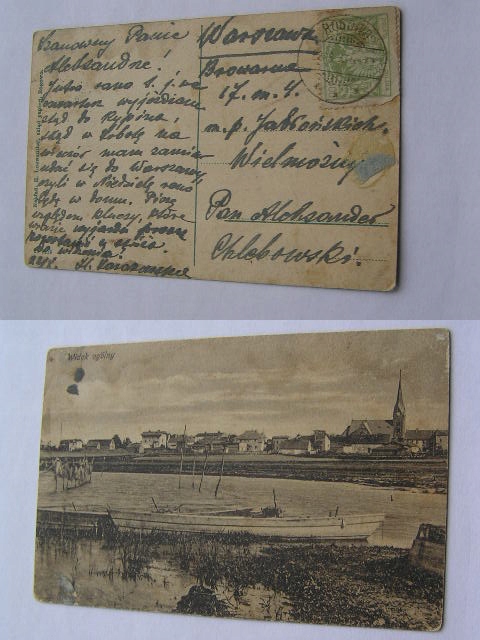 Szanowny Panie
Aleksandrze!
Jutro rano t. j. we
czwartek wyjeżdżam
stąd do Rypina,
stąd w Sobotę na
wieczór mam zamiar
udać się do Warszawy
czyli w Niedzielę rano
będę w domu. Piszę
względem kluczy, które
proszę
Do widzenia!
Warszawa
Browarna
17. m. 4.
m. p. Jabłońskich.
Wielmożny
Pan Aleksander
Chlebowski.
Widok ogólny